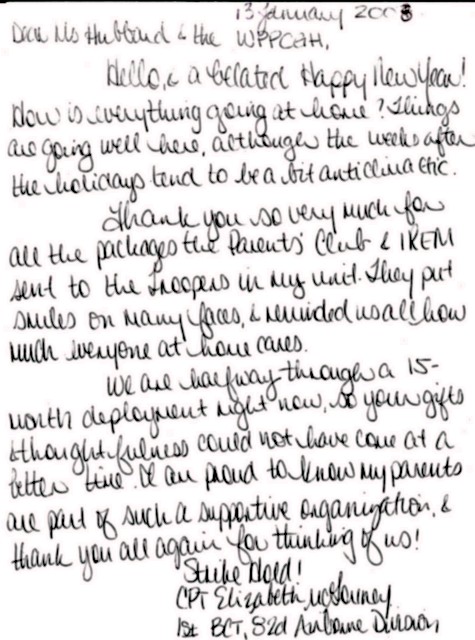 13 January 2008
Dear Ms Hubband & the WPPCGH,
Hello, & a belated Happy New Year!
How is everything going at home? Things
are going well here, although the weeks after
the holidays tend to be a bit anticlimactic.
Thank you so very much for
all the packages the Parents' Club & IKEM
sent to the Troopers in my unit. They put
smiles on many faces, & reminded us all how
much everyone at home cares.
We are halfway through a 15-
month deployment right now, so your gifts
& thoughtfulness could not have come at a
better time. I am proud to know my parents
are part of such a supportive organization, &
thank you all again for thinking of us!
Strike Hold!
CPT Elizabeth
1st BCT, 82d Airborne Division